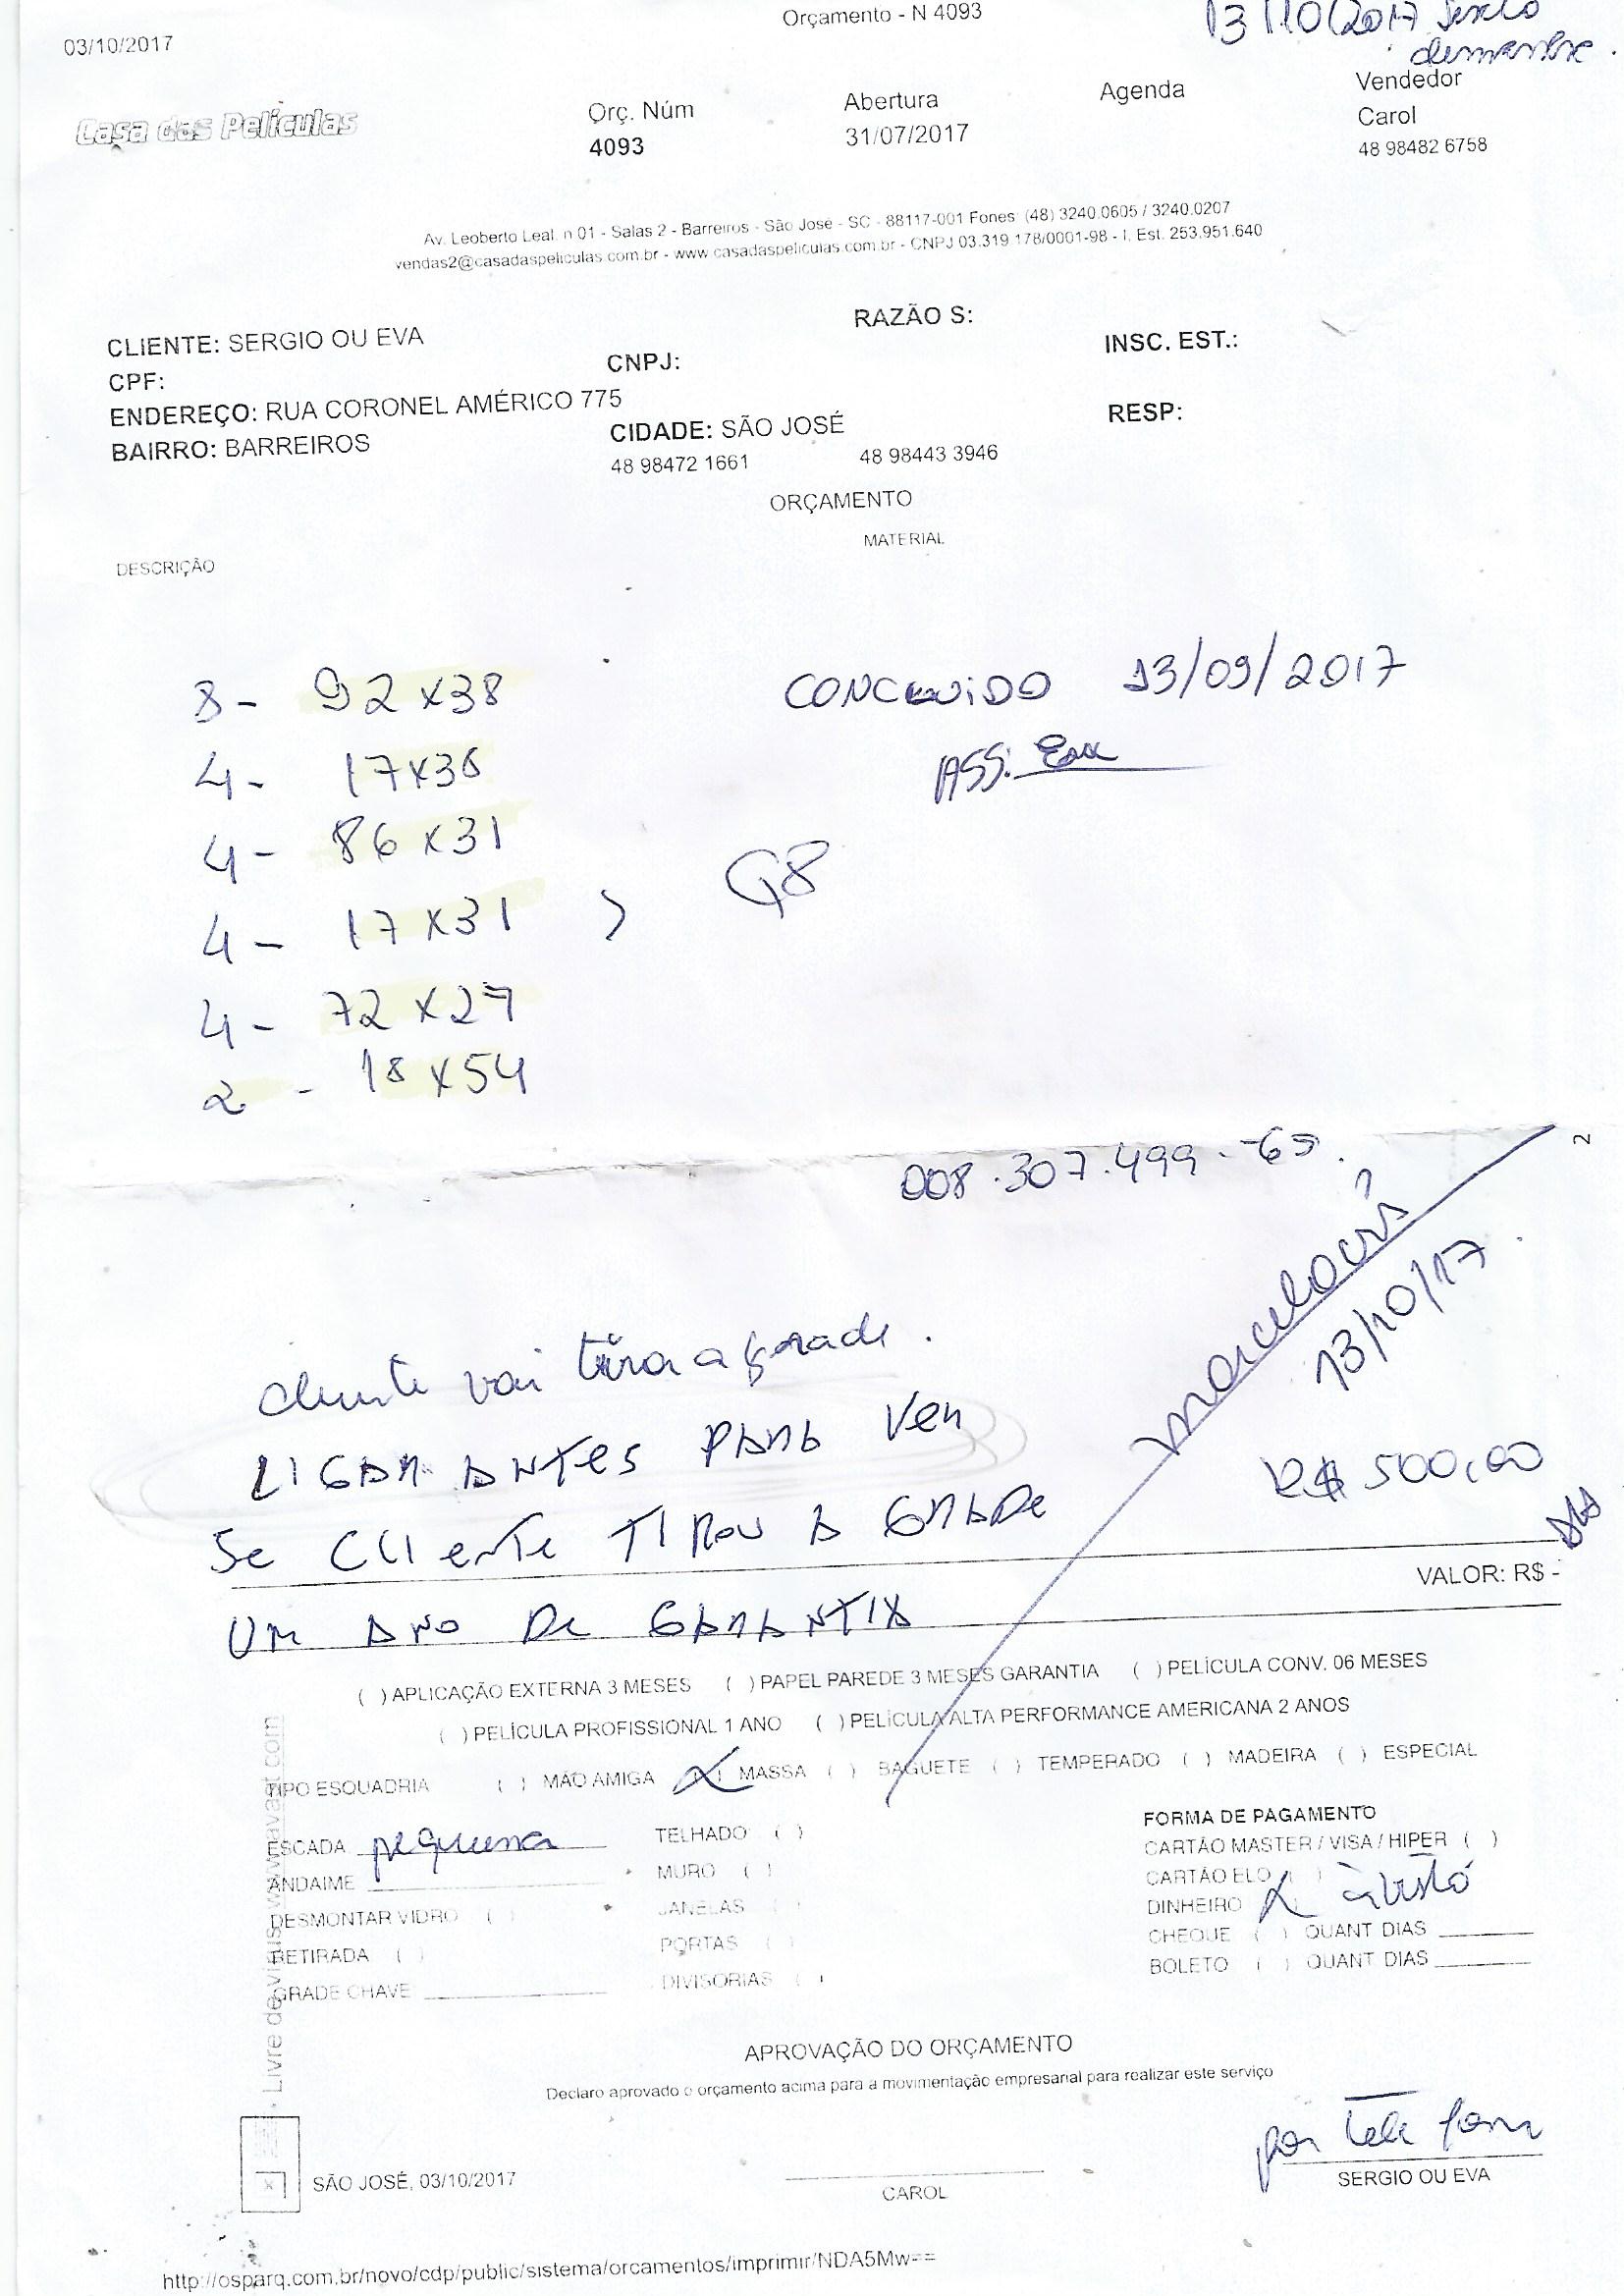 Orçamento - N 4093
03/10/2017
13/10/2017
Casa das Películas
Orç. Núm
4093
Abertura
31/07/2017
Agenda
Vendedor
Carol
48 98482 6758
Av. Leoberto Leal. n 01 - Salas 2 - Barreiros - São José - SC - 88117-001 Fones: (48) 3240.0605 / 3240.0207
vendas2@casadaspeliculas.com.br - www.casadaspeliculas.com.br - CNPJ 03.319.178/0001-98 - I. Est. 253.951.640
CLIENTE: SERGIO OU EVA
RAZÃO S:
CPF:
CNPJ:
INSC. EST.:
ENDEREÇO: RUA CORONEL AMÉRICO 775
BAIRRO: BARREIROS
CIDADE: SÃO JOSÉ
RESP:
48 98472 1661
48 98443 3946
ORÇAMENTO
MATERIAL
DESCRIÇÃO
8 - 92 x 38
CONCLUIDO 13/09/2017
4 - 17 x 36
ASS: Eva
4 - 86 x 31
G8
4 - 17 x 31
4 - 72 x 27
2 - 18 x 54
2
008.307.499-65
13/10/17
cliente vai tirar a grade.
LIGAR ANTES PARA VER
R$ 500,00
SE CLIENTE TIROU A GRADE
VALOR: R$ -
UM ANO DE GARANTIA
( ) APLICAÇÃO EXTERNA 3 MESES ( ) PAPEL PAREDE 3 MESES GARANTIA ( ) PELÍCULA CONV. 06 MESES
( ) PELÍCULA PROFISSIONAL 1 ANO ( ) PELÍCULA ALTA PERFORMANCE AMERICANA 2 ANOS
TIPO ESQUADRIA ( ) MÃO AMIGA (X) MASSA ( ) BAGUETE ( ) TEMPERADO ( ) MADEIRA ( ) ESPECIAL
ESCADA pequena
ANDAIME
DESMONTAR VIDRO ( )
RETIRADA ( )
GRADE CHAVE
TELHADO ( )
MURO ( )
JANELAS ( )
PORTAS ( )
DIVISORIAS ( )
FORMA DE PAGAMENTO
CARTÃO MASTER / VISA / HIPER ( )
CARTÃO ELO ( )
DINHEIRO X à vista
CHEQUE ( ) QUANT DIAS
BOLETO ( ) QUANT DIAS
APROVAÇÃO DO ORÇAMENTO
Declaro aprovado o orçamento acima para a movimentação empresarial para realizar este serviço
por telefone
SÃO JOSÉ, 03/10/2017
CAROL
SERGIO OU EVA
Livre de vírus. www.avast.com
http://osparq.com.br/novo/cdp/public/sistema/orcamentos/imprimir/NDA5Mw==